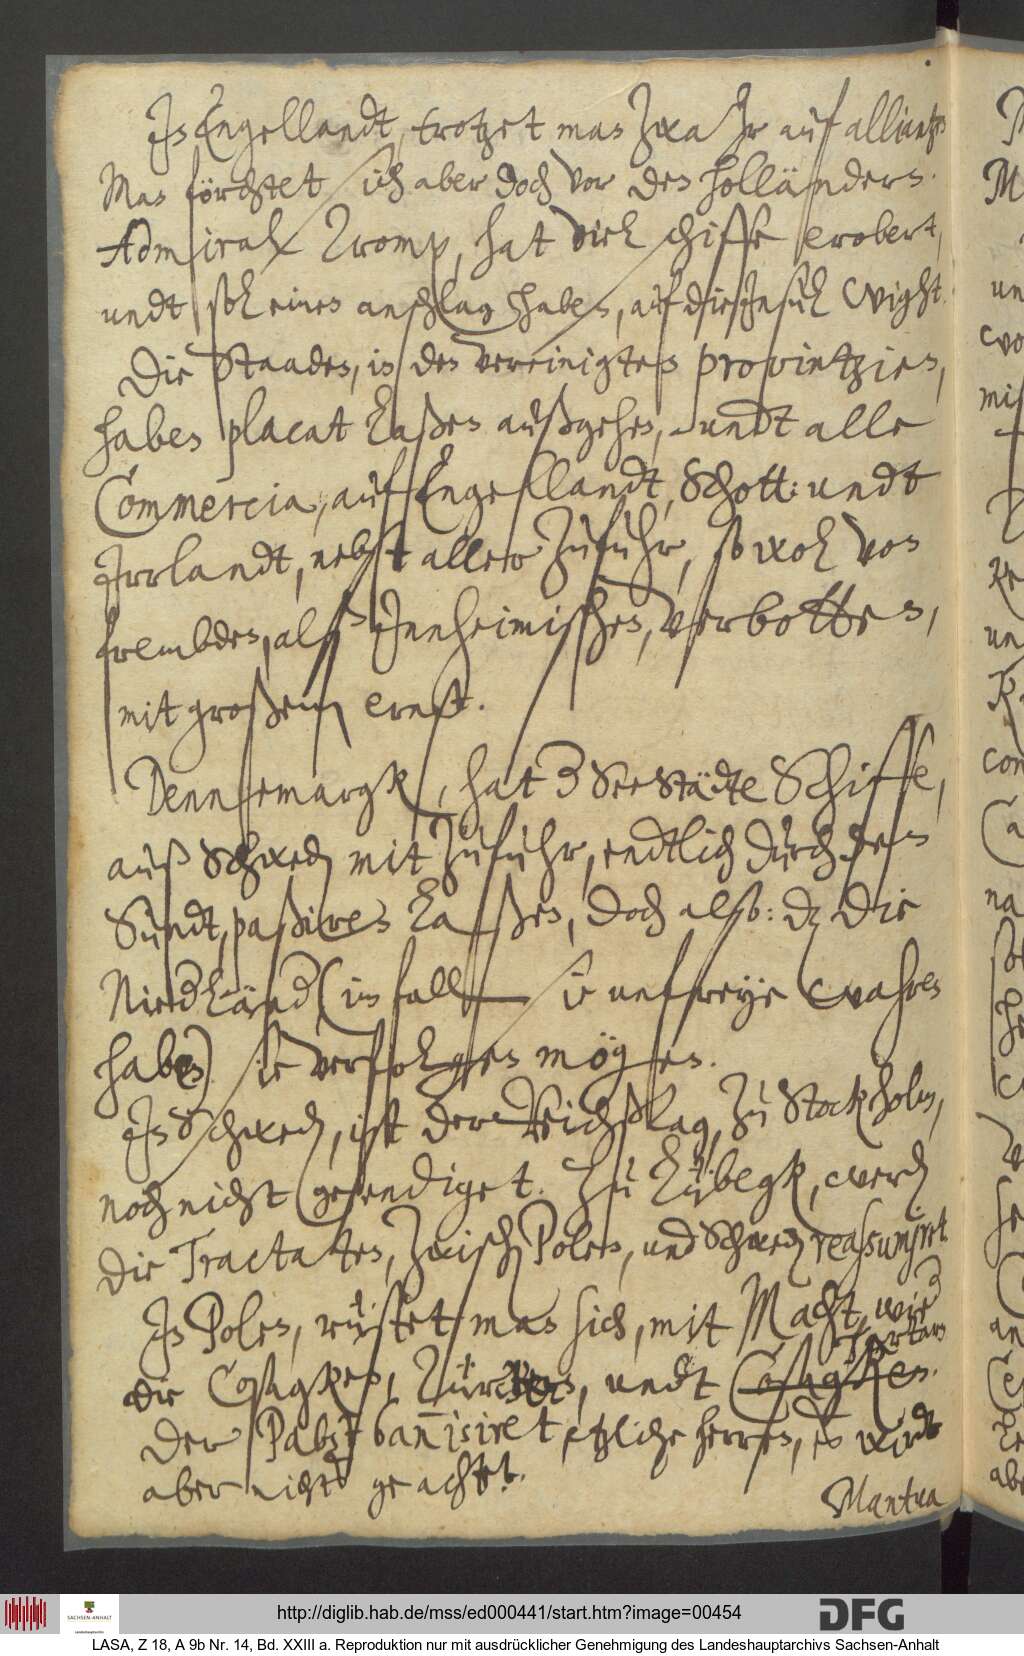 In Engellandt, trotzet man zwar Ihr auf alliantzen
Man förchtet sich aber doch vor den Holländern.
Admiral Tromp, hat viel schiffe erobert,
undt sol einen anschlag haben, auf die Insul Wight.
Die Staaden, in den vereinigten provintzien,
haben placat laßen außgehen, undt alle
Commercia, auf Engellandt, Schott: undt
Irrlandt, nebst aller zufuhr, so wol von
frembden, alß Innheimischen, verbotten,
mit großem ernst.
Dennemargk, hat 3 SeeStädte Schiffe,
auß Schweden mit zufuhr, endtlich durch den
Sundt, paßiren laßen, doch also: daß die
Niederländer (im fall sie unfreye wahren
haben) sie verfolgen mögen.
In Schweden, ist der Reichßtag, zu Stockholm,
noch nicht geendiget. Zu Lübegk, werden
die Tractaten, zwischen Polen, und Schweden reassumiret.
In Polen, rüstet man sich, mit Macht, wieder
Tartarn
die Cosagken, Türcken, undt Cosagken.
Der Pabst bannisiret etzliche herren, es wirdt
aber nicht geachtet.
Mantua
http://diglib.hab.de/mss/ed000441/start.htm?image=00454
SACHSEN-ANHALT
DFG
LASA, Z 18, A 9b Nr. 14, Bd. XXIII a. Reproduktion nur mit ausdrücklicher Genehmigung des Landeshauptarchivs Sachsen-Anhalt